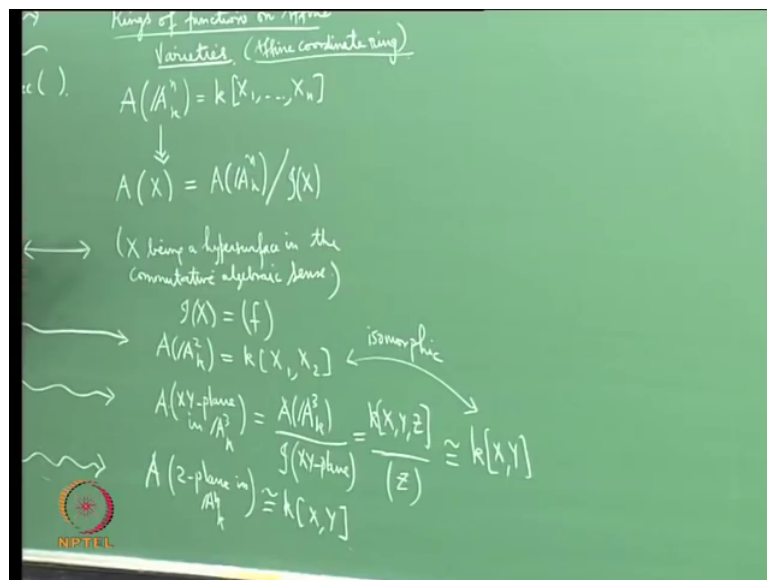 Rings of functions on Affine
Varieties. (Affine coordinate ring)
cc( ).
A(𝔸ⁿₖ) = k[X₁, ..., Xₙ]
↓
A(X) = A(𝔸ⁿₖ)/𝒥(X)
(X being a hypersurface in the
commutative algebraic sense)
𝒥(X) = (f)
A(𝔸²ₖ) = k[X₁, X₂]
isomorphic
A(XY-plane in 𝔸³ₖ) = A(𝔸³ₖ)/𝒥(XY-plane) = k[X,Y,Z]/(Z) ≅ k[X,Y]
A(2-plane in 𝔸ⁿₖ) ≅ k[X,Y]
NPTEL